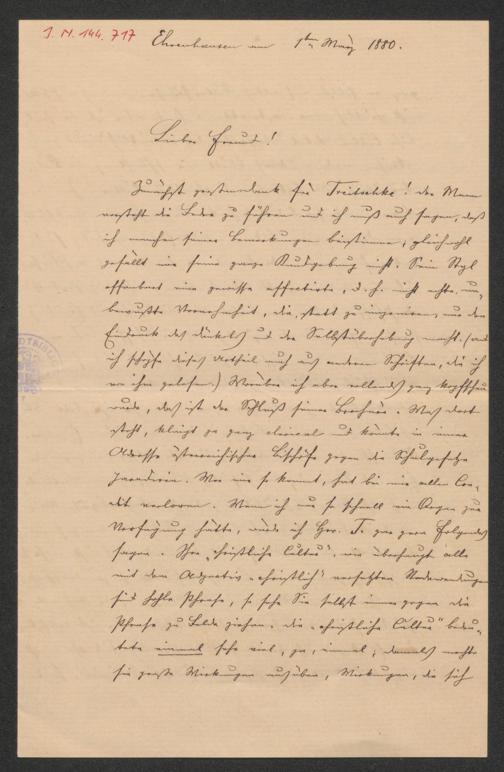 J. N. 144.717
Ehrenhausen am 1ten März 1880.
Lieber Freund!
Zunächst gestundank für Treitschke! Der Mann
versteht die Feder zu führen und ich muß auch sagen, daß
ich manchen seiner Bemerkungen beistimme; gleichwohl
gefällt mir seine ganze Kundgebung nicht. Sein Styl
offenbart eine gewisse affectirte, d. h. nicht echte, un-
bewußte Vornehmheit, die, statt zu imponiren, nur den
Eindruck des Dünkels und der Selbstüberhebung macht. (und
ich schöpfe dieses Urtheil auch aus anderen Schriften, die ich
von ihm gelesen.) Worüber ich aber vollends ganz kopfscheu
wurde, das ist der Schluß seiner Brochure. Was dort
steht, klingt ja ganz clerical und könnte in einer
Adresse österreichischer Bischöfe gegen die Schulgesetze
Wer mir so kommt, hat bei mir allen Cre-
dit verloren. Wenn ich nur so schnell ein Organ zur
Verfügung hätte, würde ich Hrn. T. gar gern Folgendes
sagen. Ihre „christliche Cultur", wie überhaupt alle
mit dem Adjectiv „christlich" versetzten Redewendungen
sind hohle Phrase, so sehr Sie selbst immer gegen die
Phrase zu Felde ziehen. Die „christliche Cultur" bedeu-
tete einmal sehr viel, ja, einmal; damals mochte
sie große Wirkungen ausüben, Wirkungen, die sich